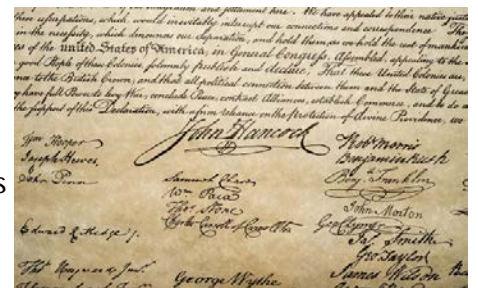 and settlement here. We have appealed to their native justice
these usurpations, which would inevitably interrupt our connections and correspondence. They
in the necessity, which denounces our Separation, and hold them, as we hold the rest of mankind
es of the united States of America, in General Congress, Assembled, appealing to the
good People of these Colonies, solemnly publish and declare, That these United Colonies are,
nce to the British Crown, and that all political connection between them and the State of Great
y have full Power to levy War, conclude Peace, contract Alliances, establish Commerce, and to do a
the support of this Declaration, with a firm reliance on the Protection of divine Providence, we
John Hancock
Wm Hooper
Joseph Hewes,
John Penn
Edward Rutledge
S
Samuel Chase
Wm Paca
Thos Stone
Charles Carroll of Carrollton
George Wythe
Robt Morris
Benjamin Rush
Benj. Franklin
John Morton
Geo Clymer
Jas. Smith
Geo. Taylor
James Wilson